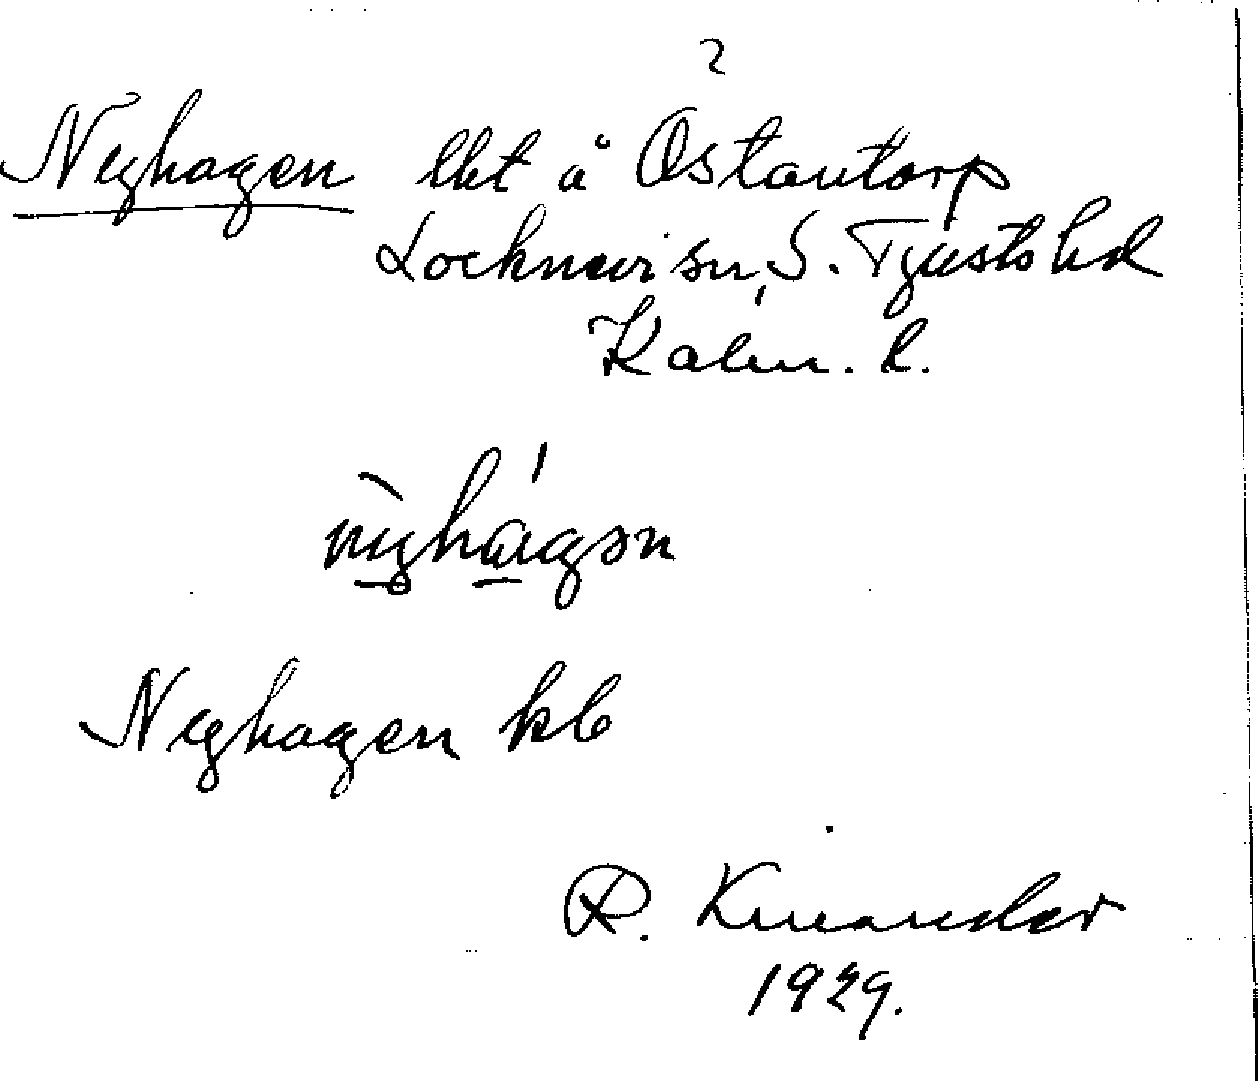 2
Nyhagen lht å Östantorp
Locknevi sn, S. Tjusts hd
Kalm. l.
nyhagən
Nyhagen kb
R. Kinander
1929.